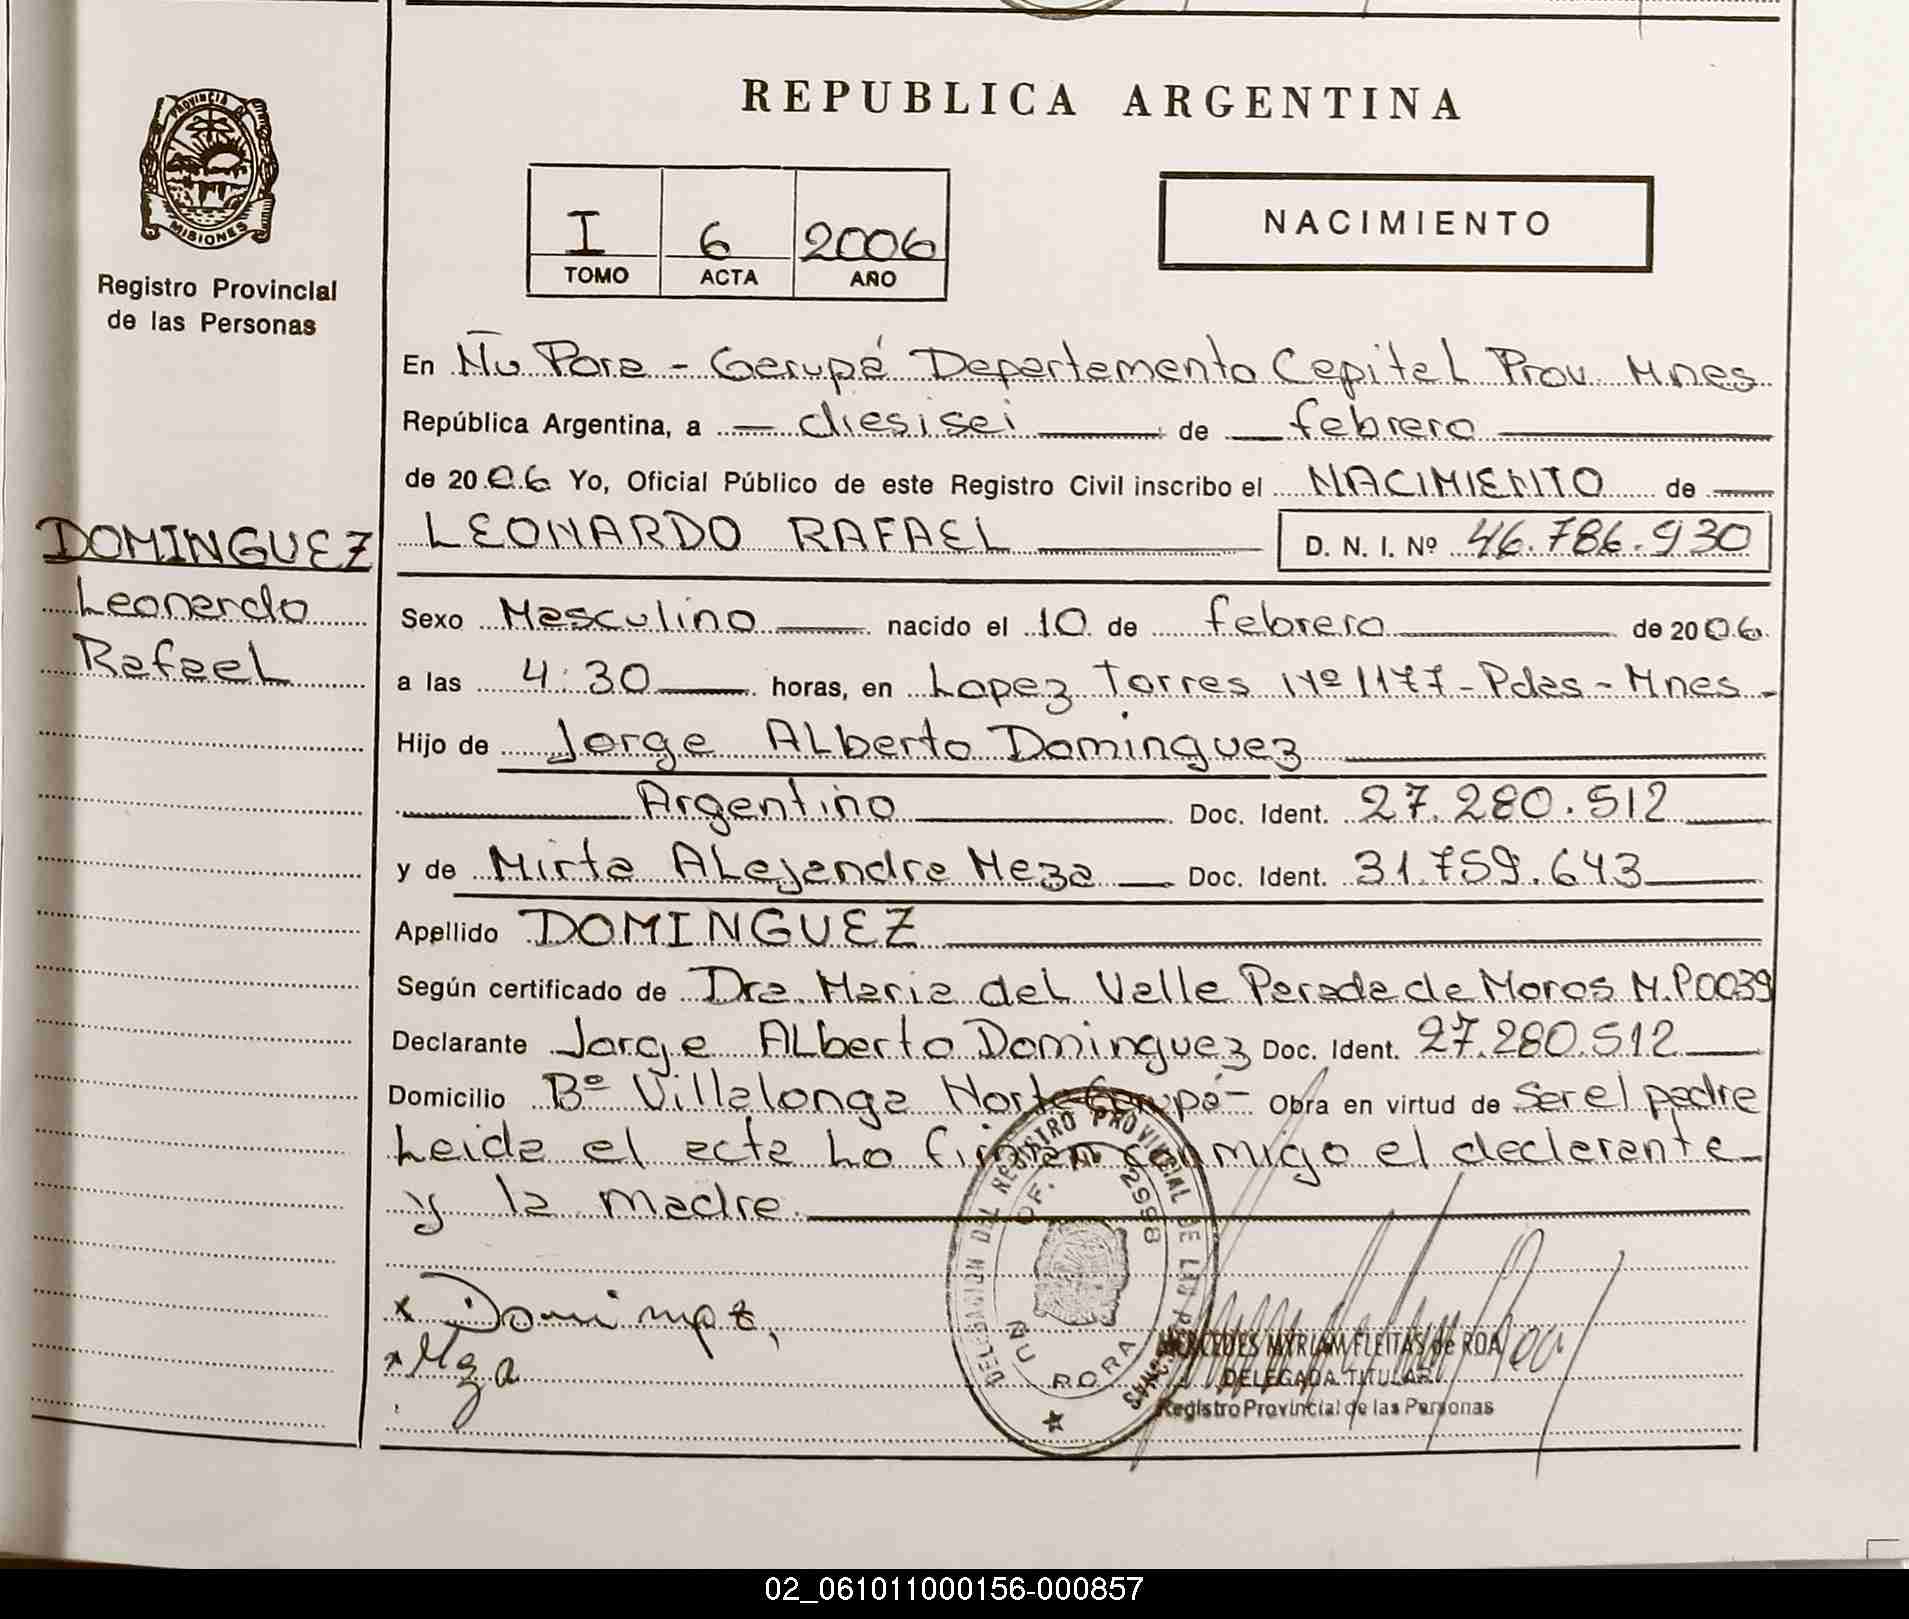 REPUBLICA ARGENTINA
PROVINCIA DE
MISIONES
Registro Provincial
de las Personas
I 6 2006
TOMO ACTA AÑO
NACIMIENTO
En Ñu Pora - Garupá Departamento Capital Prov. Mnes
República Argentina, a diesisei de febrero
de 2006 Yo, Oficial Público de este Registro Civil inscribo el NACIMIENTO de
LEONARDO RAFAEL D. N. I. Nº 46.786.930
DOMINGUEZ
Leonardo
Rafael
Sexo Masculino nacido el 10 de febrero de 2006
a las 4:30 horas, en Lopez Torres Nº 1177 - Pdas - Mnes -
Hijo de Jorge Alberto Dominguez
Argentino Doc. Ident. 27.280.512
y de Mirta Alejandra Meza Doc. Ident. 31.759.643
Apellido DOMINGUEZ
Según certificado de Dra. Maria del Valle Parada de Moros M.P0039
Declarante Jorge Alberto Dominguez Doc. Ident. 27.280.512
Domicilio Bº Villalonga Norte Garupá - Obra en virtud de ser el padre
Leida el acta Lo firman conmigo el declarante
y la madre
DELEGACION DEL REGISTRO PROVINCIAL DE LAS PERSONAS
OF. 2998
ÑU PORA
x Dominguez
x Meza
MERCEDES MYRIAM FLEITAS de ROA
DELEGADA TITULAR
Registro Provincial de las Personas
02_061011000156-000857